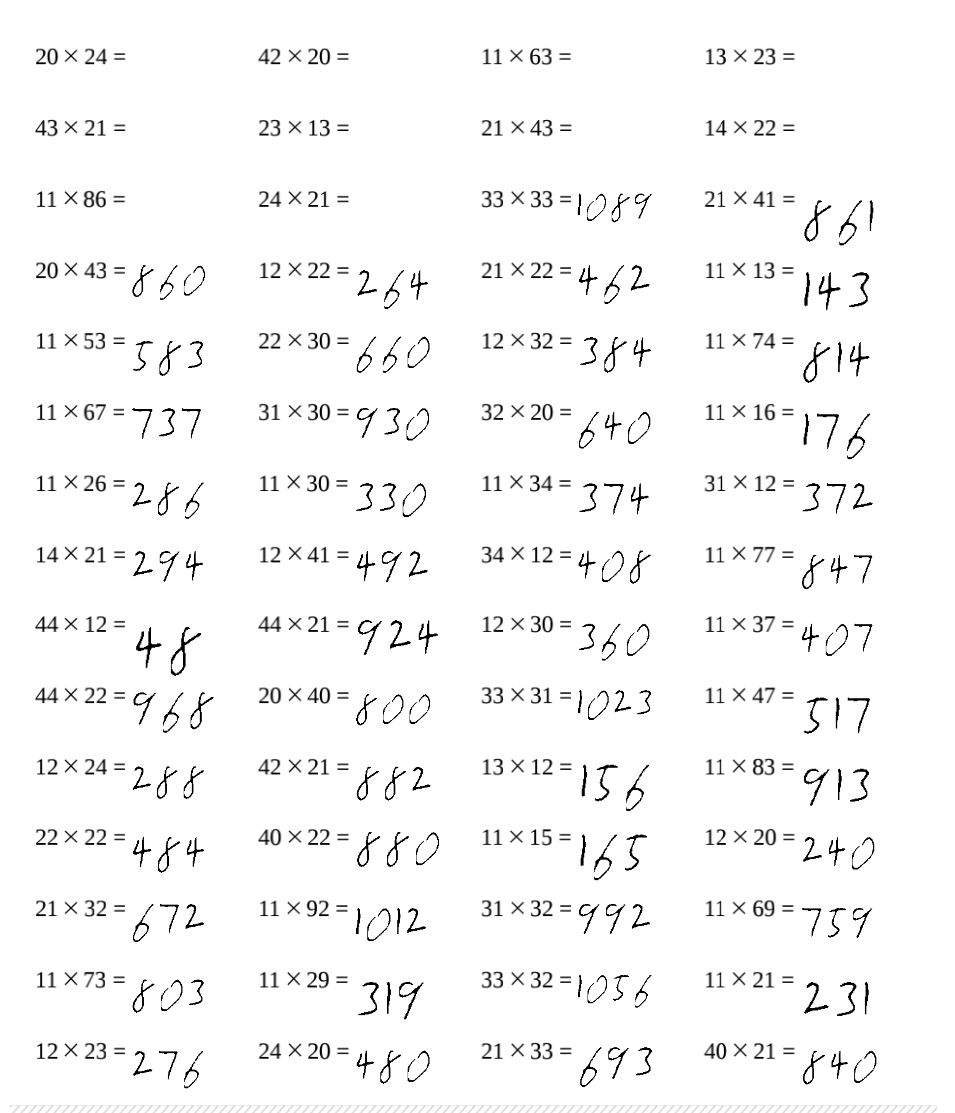 20 × 24 = 42 × 20 = 11 × 63 = 13 × 23 =
43 × 21 = 23 × 13 = 21 × 43 = 14 × 22 =
11 × 86 = 24 × 21 = 33 × 33 = 1089 21 × 41 = 861
20 × 43 = 860 12 × 22 = 264 21 × 22 = 462 11 × 13 = 143
11 × 53 = 583 22 × 30 = 660 12 × 32 = 384 11 × 74 = 814
11 × 67 = 737 31 × 30 = 930 32 × 20 = 640 11 × 16 = 176
11 × 26 = 286 11 × 30 = 330 11 × 34 = 374 31 × 12 = 372
14 × 21 = 294 12 × 41 = 492 34 × 12 = 408 11 × 77 = 847
44 × 12 = 48 44 × 21 = 924 12 × 30 = 360 11 × 37 = 407
44 × 22 = 968 20 × 40 = 800 33 × 31 = 1023 11 × 47 = 517
12 × 24 = 288 42 × 21 = 882 13 × 12 = 156 11 × 83 = 913
22 × 22 = 484 40 × 22 = 880 11 × 15 = 165 12 × 20 = 240
21 × 32 = 672 11 × 92 = 1012 31 × 32 = 992 11 × 69 = 759
11 × 73 = 803 11 × 29 = 319 33 × 32 = 1056 11 × 21 = 231
12 × 23 = 276 24 × 20 = 480 21 × 33 = 693 40 × 21 = 840